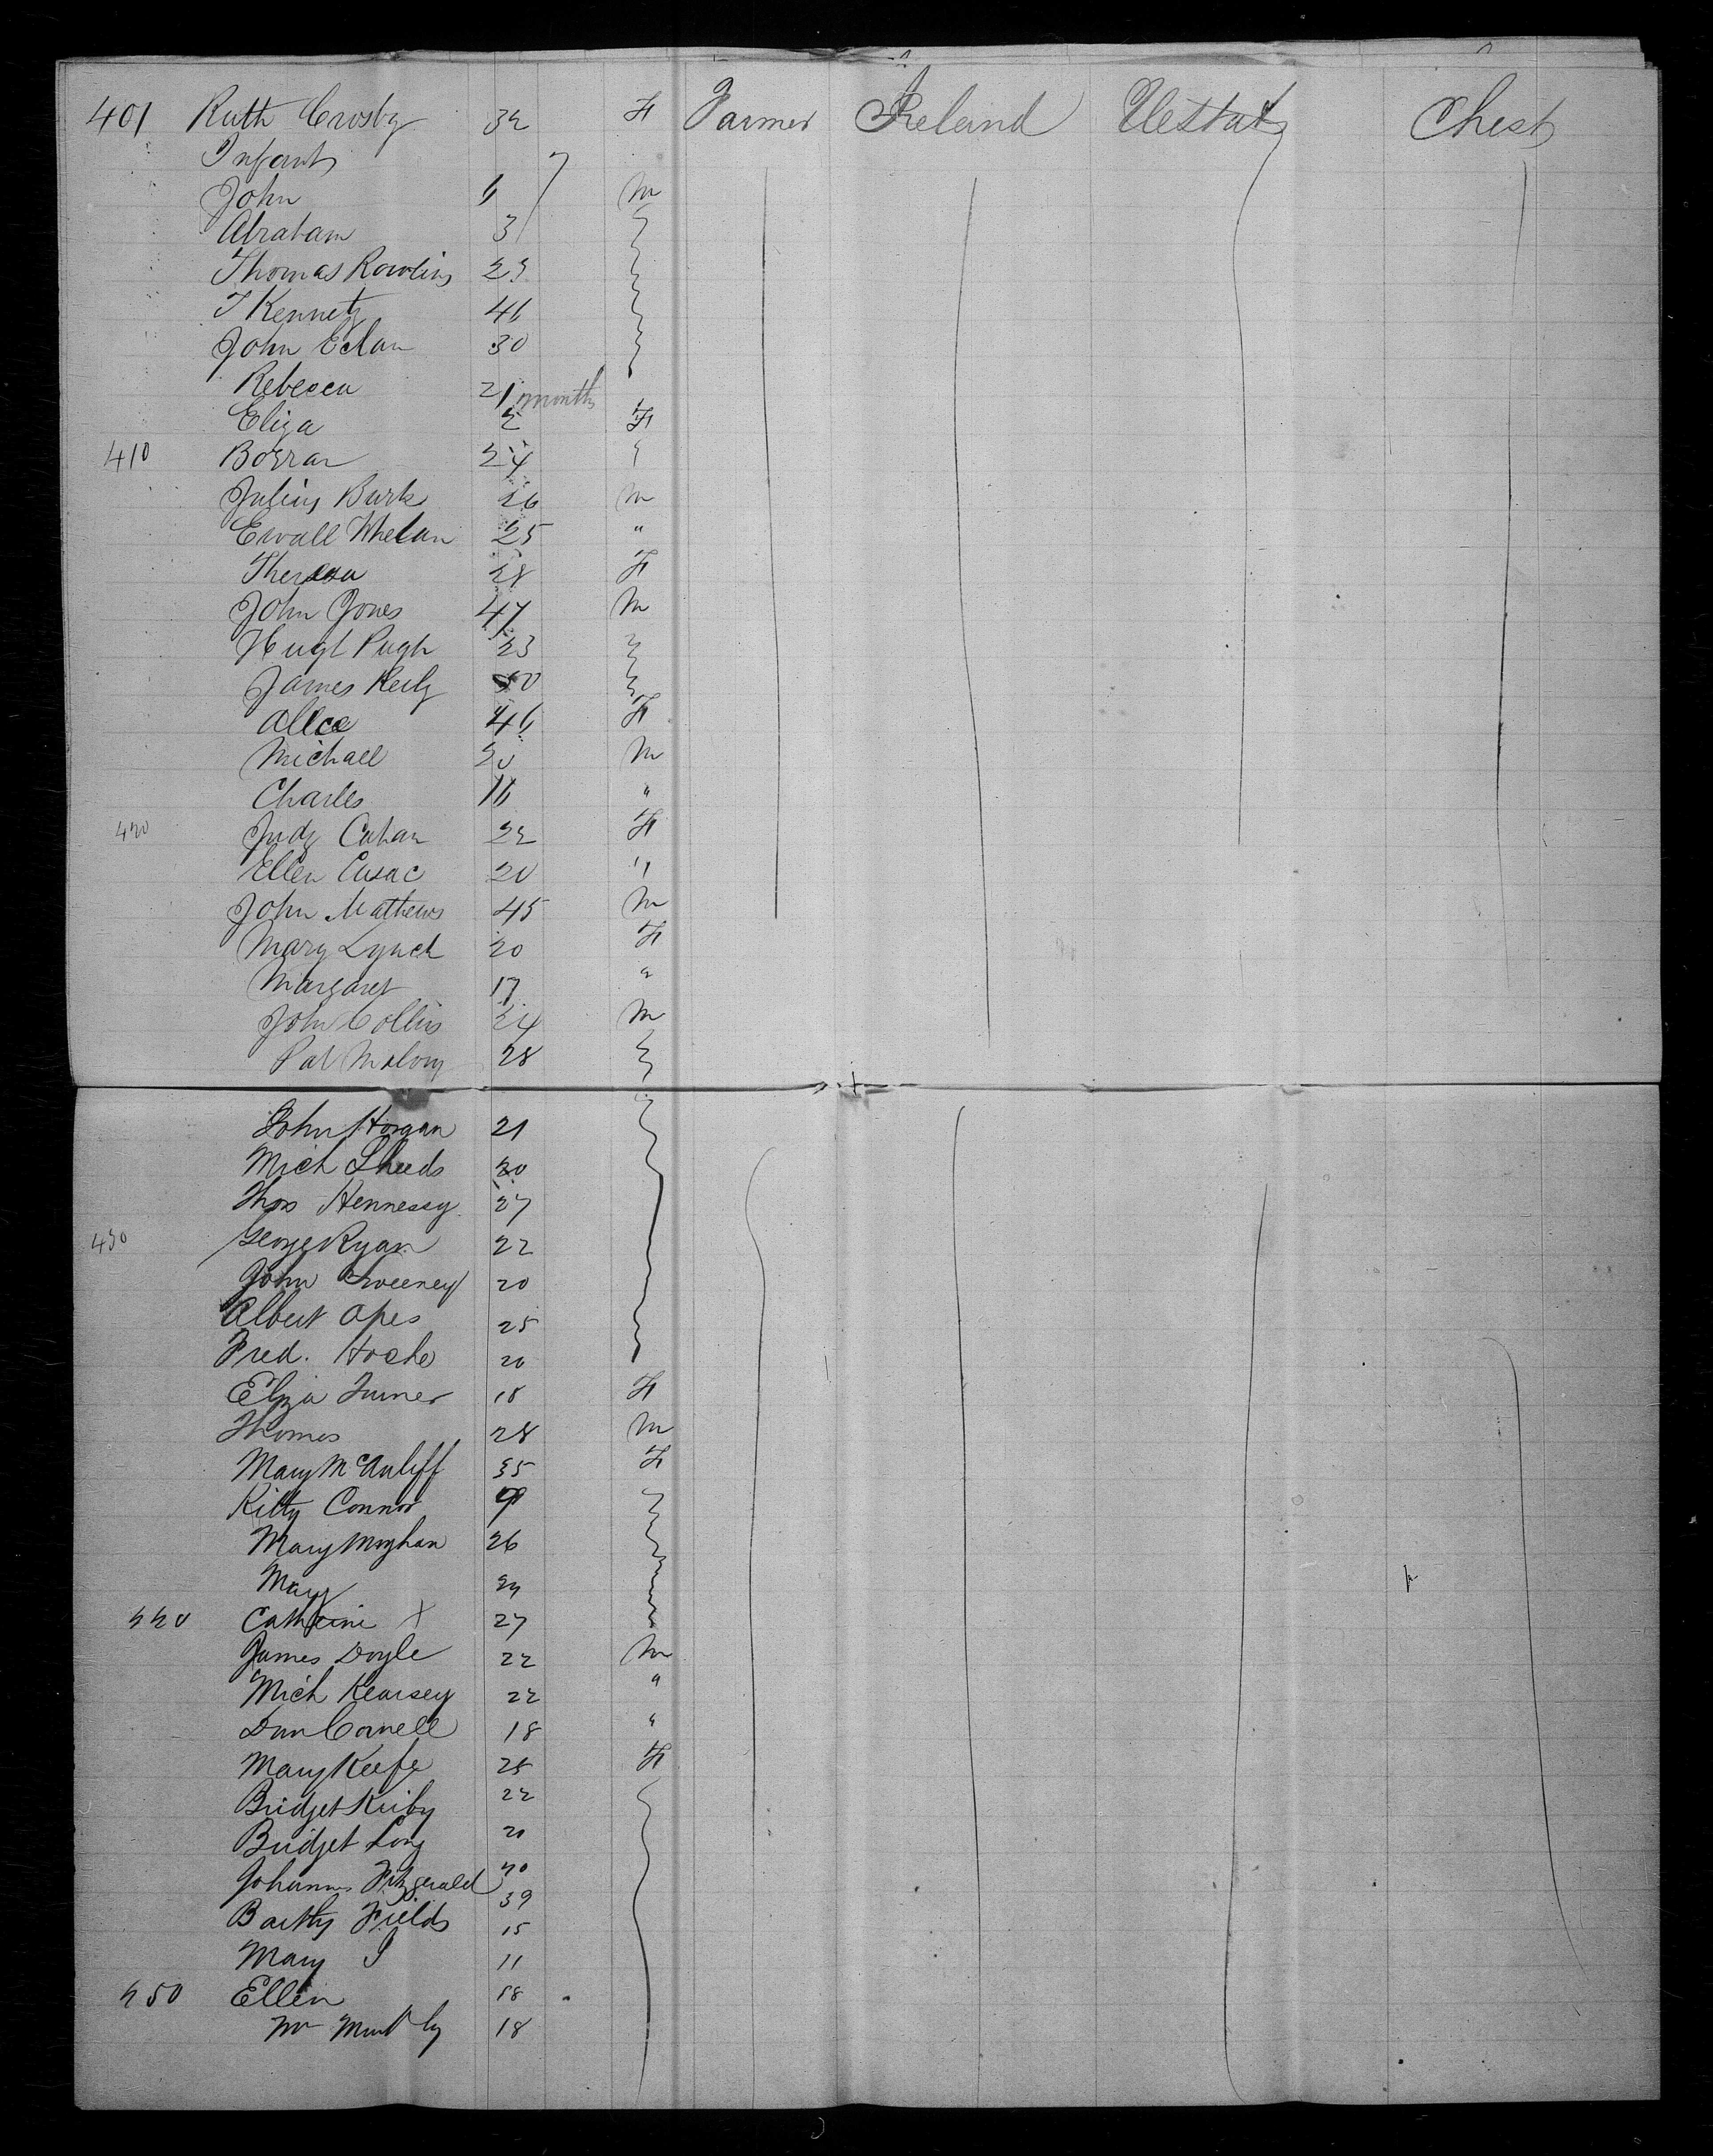 401 Ruth Crosby 32 F Farmer Ireland U Stat Chest
Infant
John 6 M
Abraham 3
Thomas Rowlins 23
T Kennety 46
John Eclan 30
Rebecca 21 months
Eliza 2 F
410 Borran 24
Julius Burk 26 M
Ewall Whelan 25 "
Theresa 28 F
John Jones 47 M
Hugh Pugh 23
James Keily 50
Allce 46 F
Michael 20 M
Charles 16 "
420 Judy Cahan 22 F
Ellen Cusac 20 "
John Mathews 45 M
Mary Lynch 20 F
Margaret 17 "
John Collis 24 M
Pat Malony 28
John Horgan 21
Mich Sheeds 30
Thos Hennessy 27
430 George Ryan 22
John Sweeney 20
Albert Apes 25
Fred. Hoche 20
Eliza Turner 18 F
Thomas 28 M
Mary McAuliff 35 F
Kitty Connor 9
Mary Moghan 26
Mary
440 Catherine X 27
James Doyle 22 M
Mich Kearsey 22 "
Dan Cornell 18 "
Mary Keefe 25 F
Bridget Kirby 22
Bridget Long 20
Johanna Fitzgerald 40
Bartly Fields 39
Mary S 15
450 Ellen 11
18
Wm Murphy 18